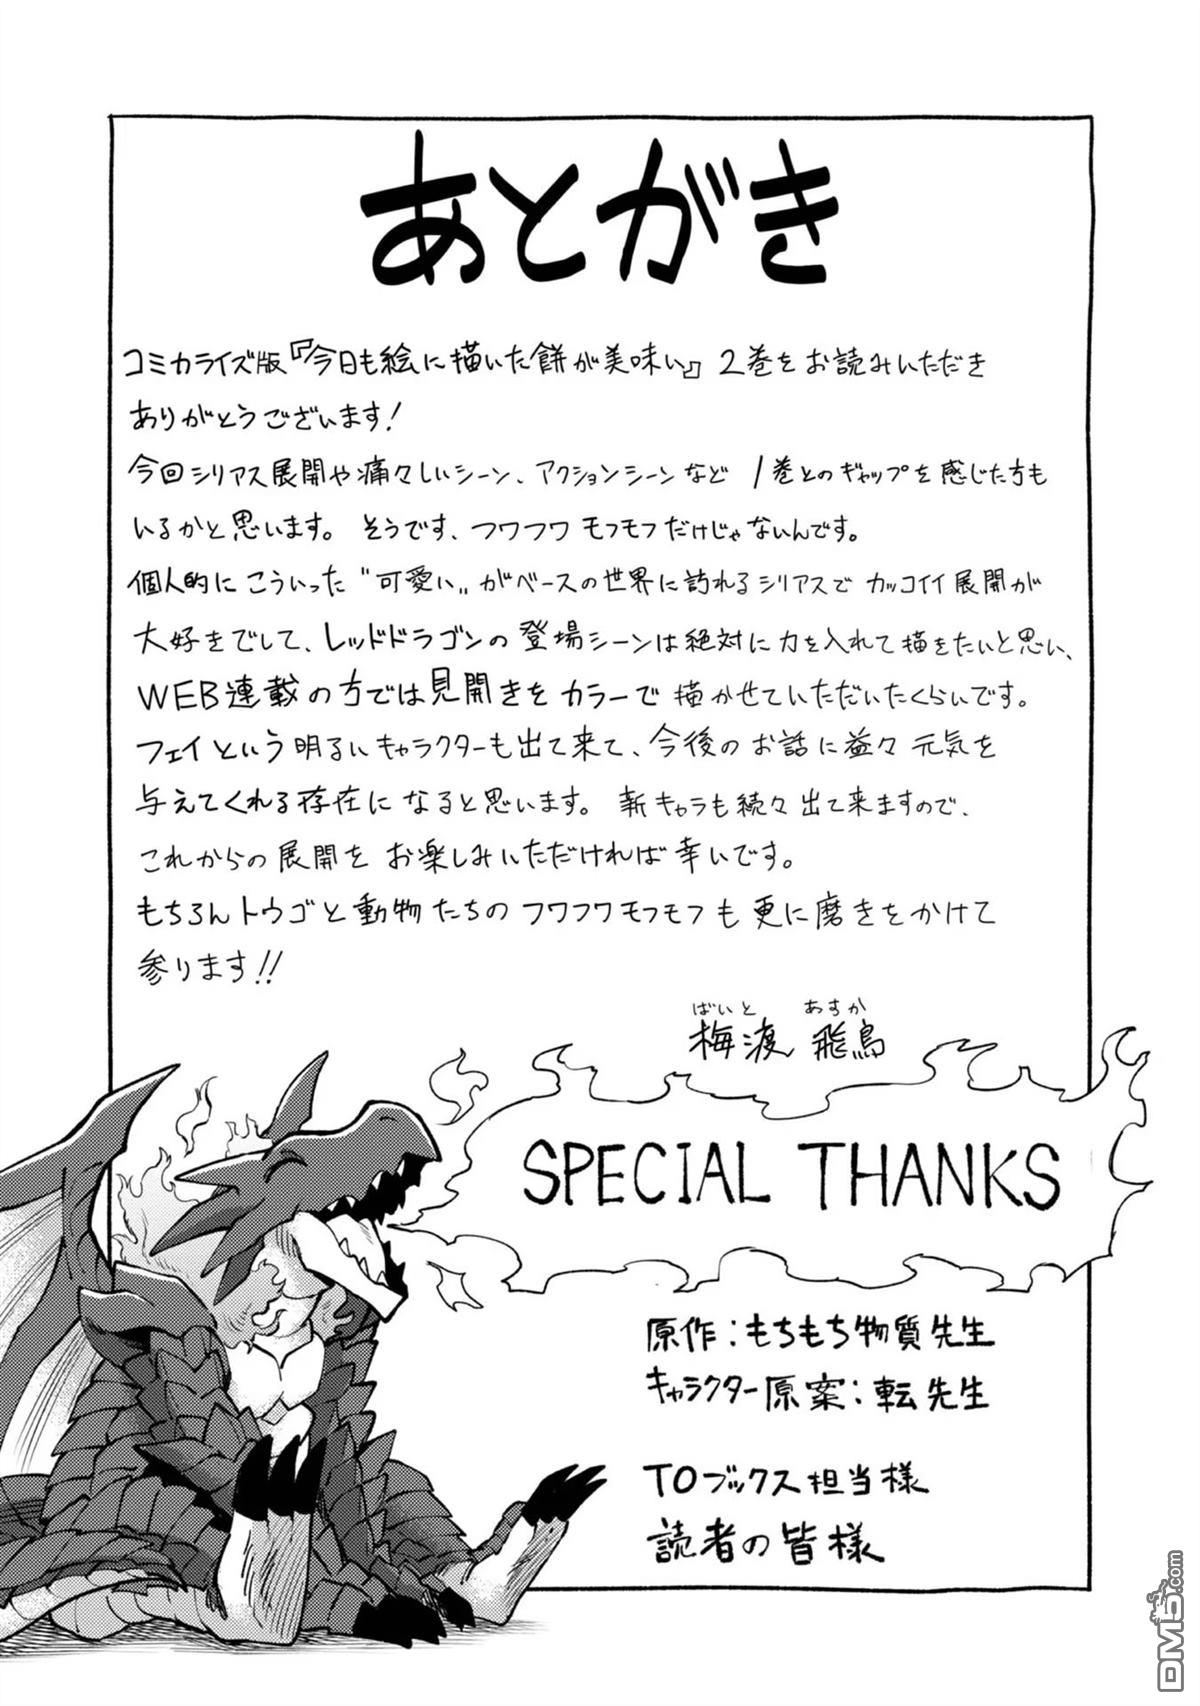 あとがき
コミカライズ版『今日も絵に描いた餅が美味い』2巻をお読みいただき
ありがとうございます!
今回シリアス展開や痛々しいシーン、アクションシーンなど 1巻とのギャップを感じた方も
いるかと思います。 そうです、フワフワ モフモフだけじゃないんです。
個人的に こういった "可愛い" がベースの世界に訪れるシリアスで カッコイイ展開が
大好きでして、レッドドラゴンの登場シーンは絶対に力を入れて描きたいと思い、
WEB連載の方では見開きをカラーで描かせていただいたくらいです。
フェイという明るいキャラクターも出て来て、今後のお話に益々元気を
与えてくれる存在になると思います。 新キャラも続々出て来ますので、
これからの展開を お楽しみいただければ幸いです。
もちろんトウゴと動物たちのフワフワモフモフも更に磨きをかけて
参ります!!
ばいと あすか
梅渡 飛鳥
SPECIAL THANKS
原作:もちもち物質先生
キャラクター原案:転先生
TOブックス担当様
読者の皆様
DM5.com